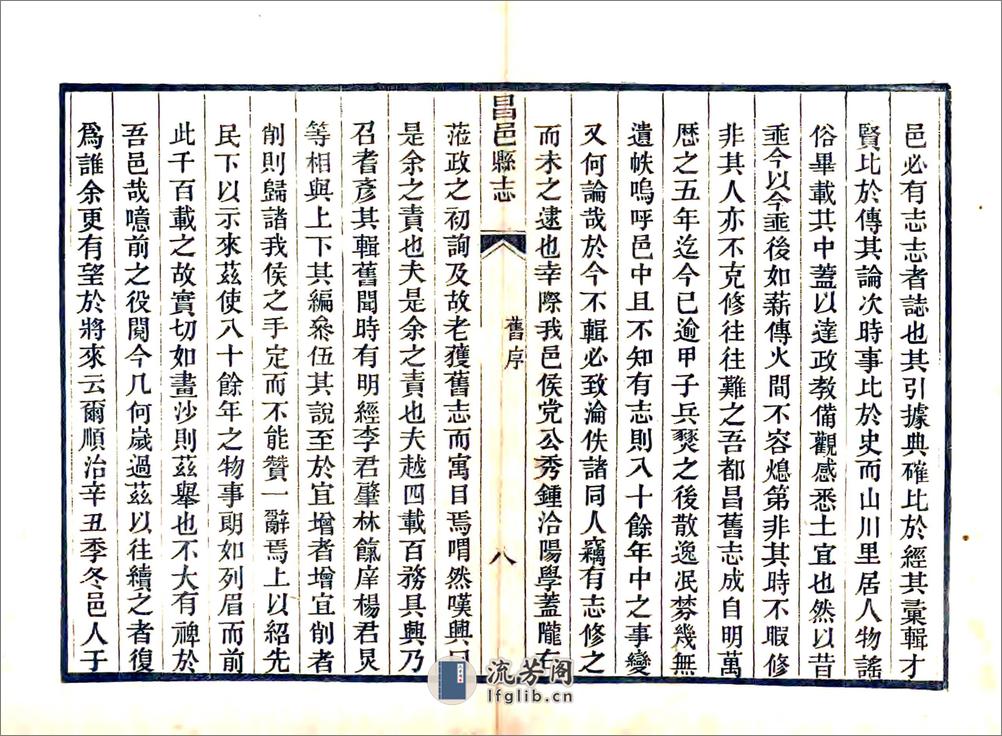 邑必有志志者誌也其引據典確比於經其彙輯才
賢比於傳其論次時事比於史而山川里居人物謠
俗畢載其中蓋以達政教備觀感悉土宜也然以昔
亟今以今亟後如薪傳火間不容熄第非其時不暇修
非其人亦不克修往往難之吾都昌舊志成自明萬
歴之五年迄今已逾甲子兵燹之後散逸冺棼幾無
遺帙嗚呼邑中且不知有志則八十餘年中之事變
又何論哉於今不輯必致淪佚諸同人竊有志修之
而未之逮也幸際我邑侯党公秀鍾洽陽學蓋隴右
昌邑縣志
舊序
八
蒞政之初詢及故老獲舊志而寓目焉喟然嘆興曰
是余之責也夫是余之責也夫越四載百務具興乃
召耆彥其輯舊聞時有明經李君肇林餼庠楊君炅
等相與上下其編叅伍其說至於宜增者增宜削者
削則歸諸我侯之手定而不能贊一辭焉上以紹先
民下以示來茲使八十餘年之物事朗如列眉而前
此千百載之故實切如畫沙則茲舉也不大有禆於
吾邑哉噫前之役閱今几何嵗過茲以往續之者復
爲誰余更有望於將來云爾順治辛丑季冬邑人于
流芳阁
lfglib.cn